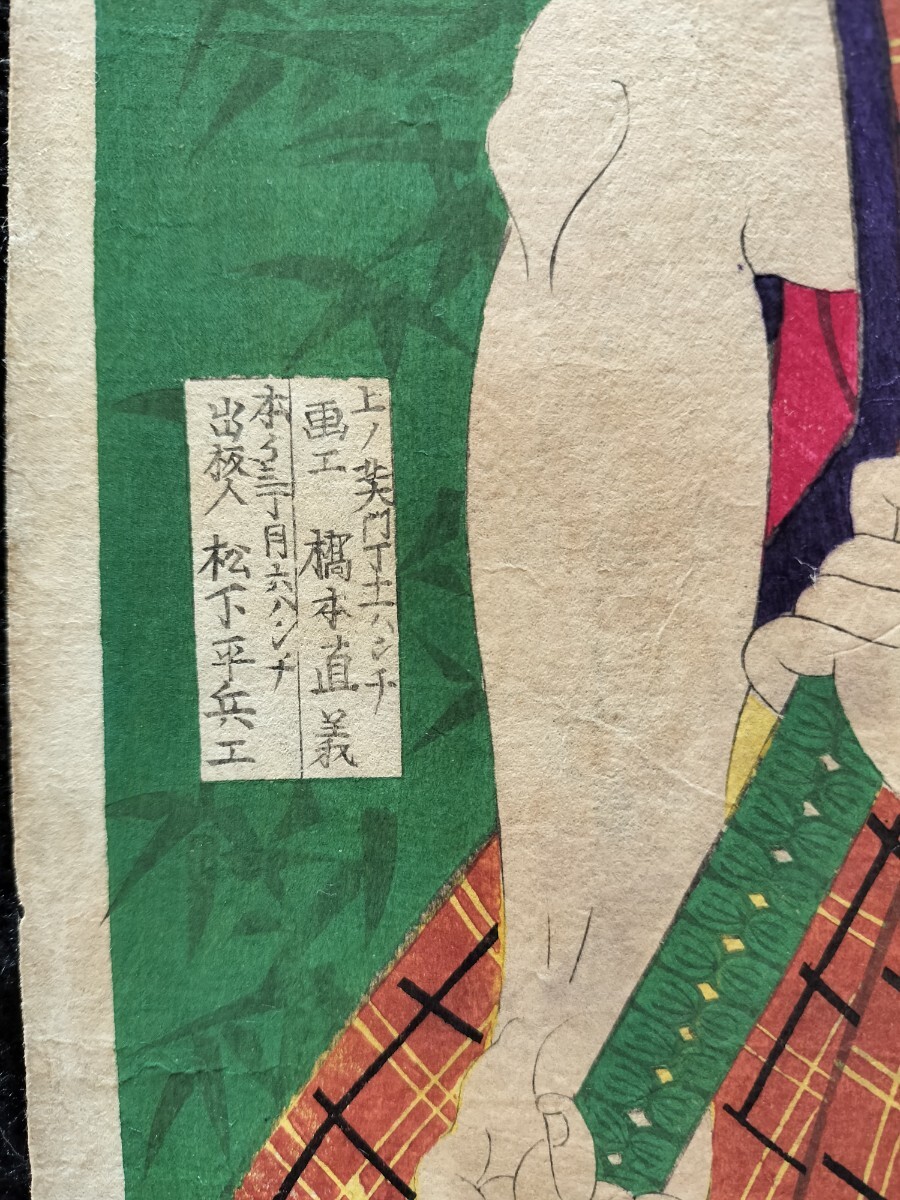 上ノ黄門丁十六ハンチ
画工 橋本直義
本郷三丁目六ハンチ
出板人 松下平兵エ